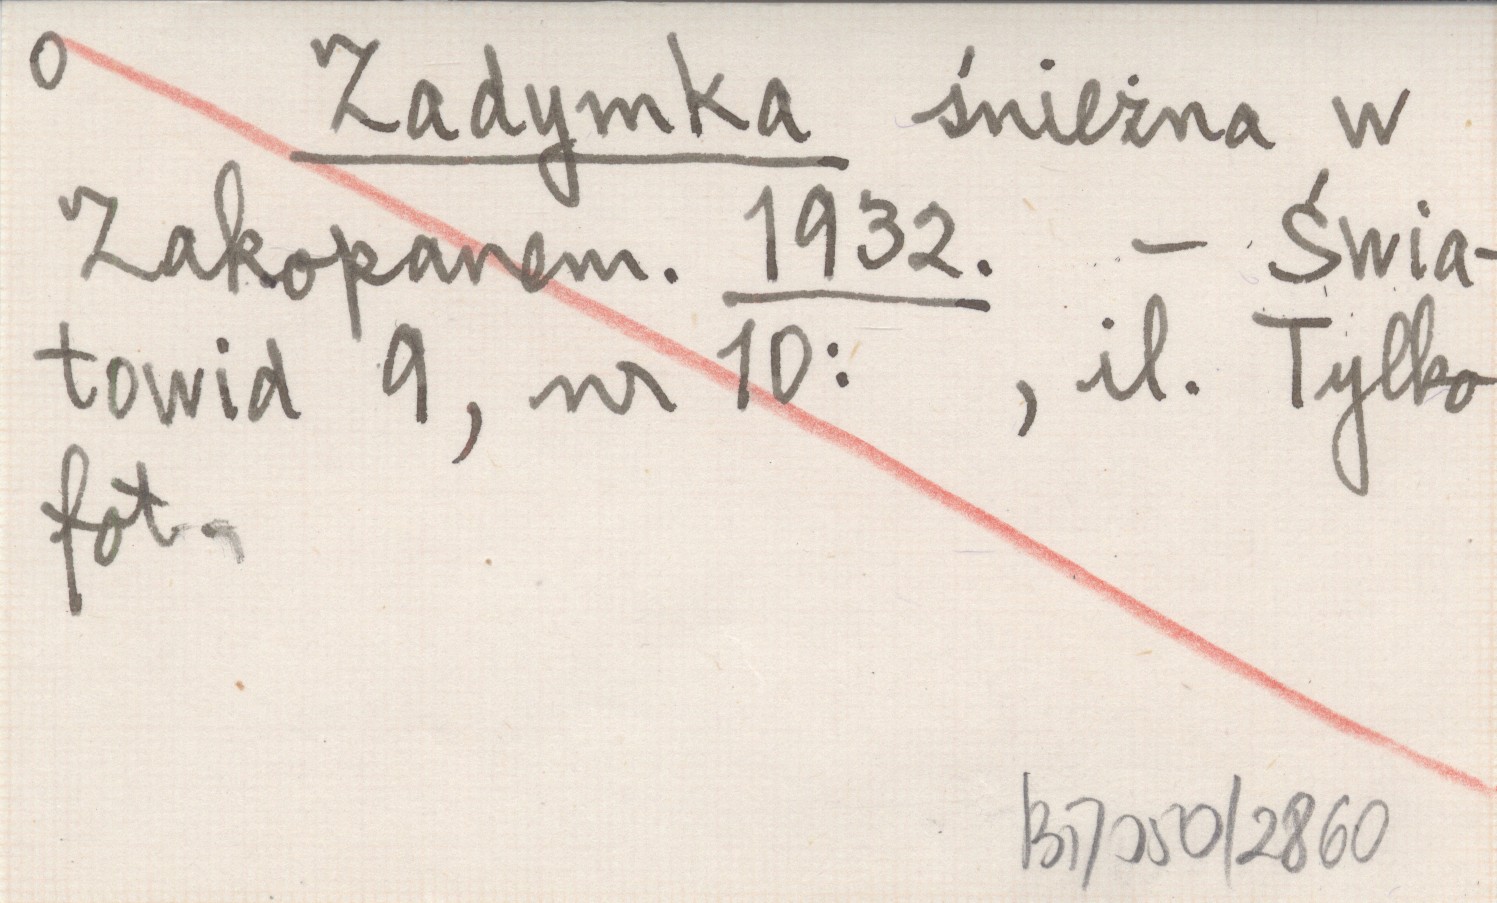 O Zadymka śnieżna w
Zakopanem. 1932. - Świa-
towid 9, nr 10: , il. Tylko
fot.
2860